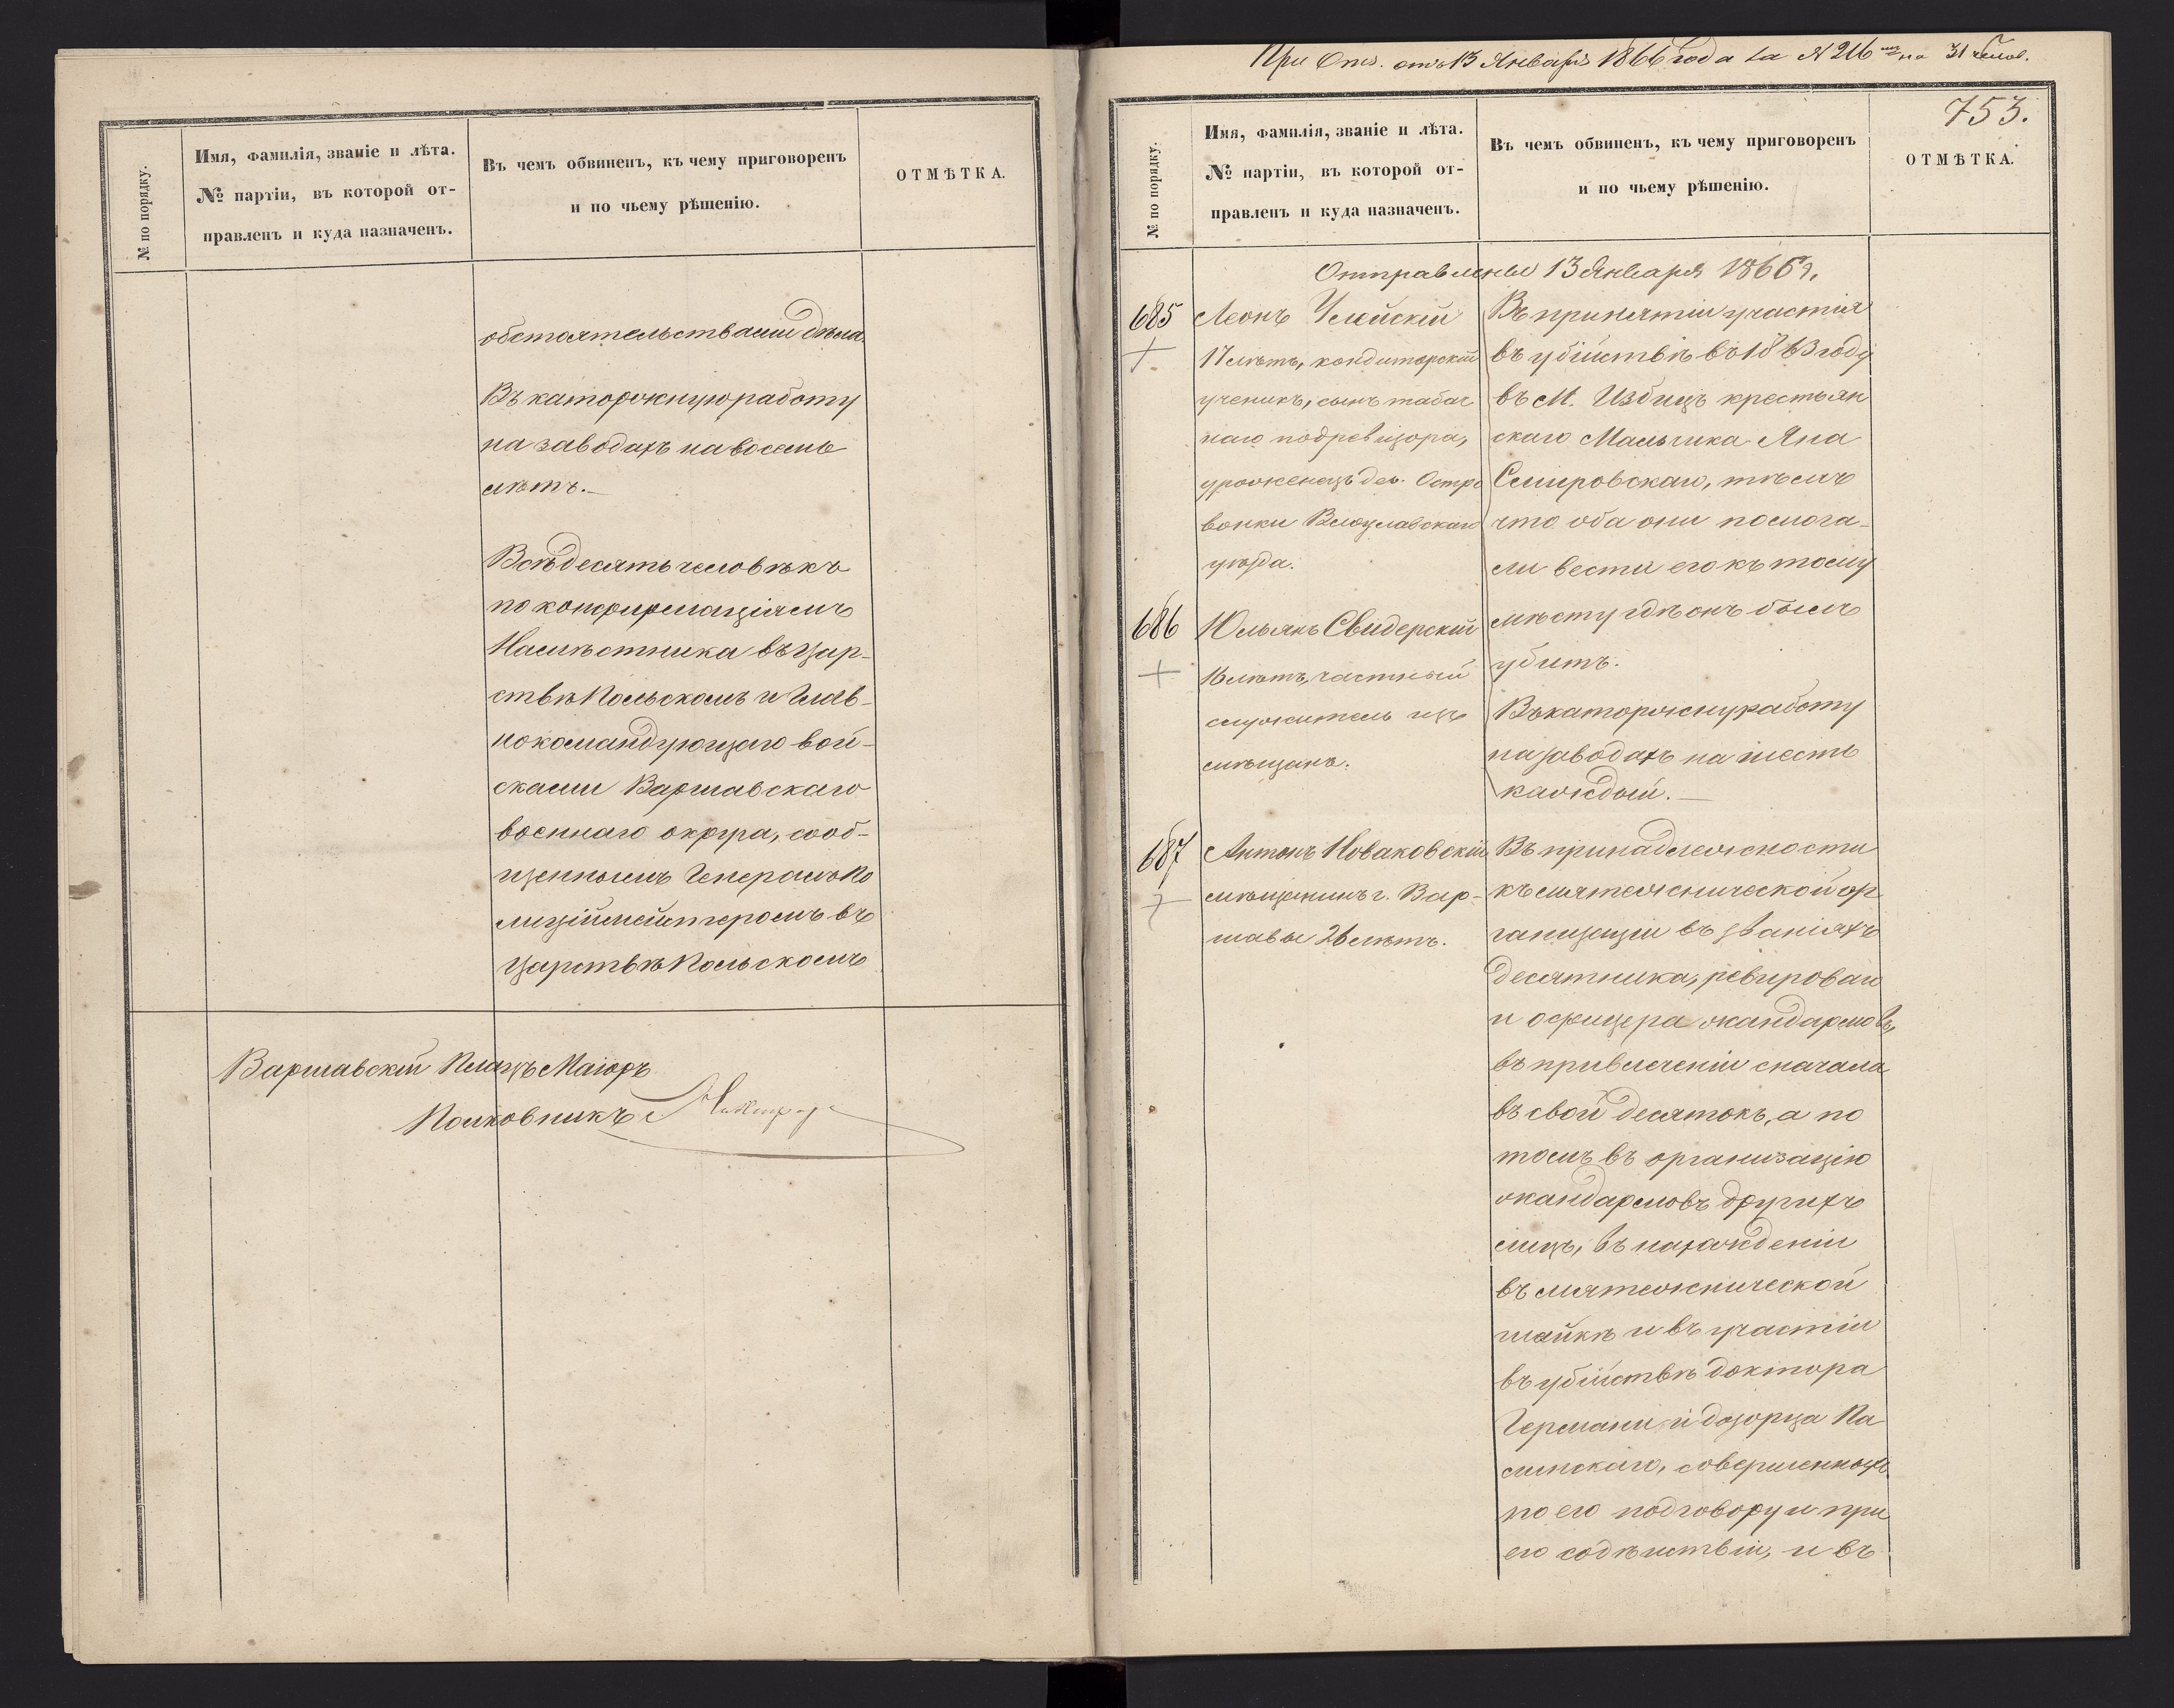 № по порядку.
Имя, фамилія, званіе и лѣта.
№ партіи, въ которой от-
правленъ и куда назначенъ.
Въ чемъ обвиненъ, къ чему приговоренъ
и по чьему рѣшенію.
ОТМѢТКА.
обстоятельствами дѣла.
Въ каторжную работу
на заводахъ на восемь
лѣтъ.—
Всѣ десять человѣкъ
по конфирмаціямъ
Намѣстника въ Цар-
ствѣ Польскомъ и Глав-
нокомандующаго вой-
сками Варшавскаго
военнаго округа, сооб-
щеннымъ Генералъ По
лиціймейстеромъ въ
Царствѣ Польскомъ
Варшавскій Плацъ Маіоръ
Полковникъ
При Отз. отъ 13 Января 1866 года за № 216 на 31 челов.
753.
№ по порядку.
Имя, фамилія, званіе и лѣта.
№ партіи, въ которой от-
правленъ и куда назначенъ.
Въ чемъ обвиненъ, къ чему приговоренъ
и по чьему рѣшенію.
ОТМѢТКА.
Отправлены 13 Января 1866 г.
685 Леонъ
17 лѣтъ, кондитерскій
ученикъ, сынъ табач
наго подревизора,
уроженецъ дер. Остро
вонки Влоцлавскаго
уѣзда.
686 Юльянъ Свидерскій
16 лѣтъ, частный
служитель изъ
мѣщанъ.
Въ принятіи участія
въ убійствѣ въ 1863 году
въ М. Избицѣ крестьян
скаго мальчика Яна
Смировскаго, тѣмъ
что оба они помога-
ли вести его къ тому
мѣсту гдѣ онъ былъ
убитъ.
Въ каторжну работу
на заводахъ на шесть
каждый.—
687 Антонъ Новаковскій
мѣщанинъ г. Вар-
шавы 26 лѣтъ.
Въ принадлежности
къ мятежнической ор
ганизаціи въ званіяхъ
десятника, ревироваго
и офицера жандармовъ,
въ привлеченіи сначала
въ свой десятокъ, а по
томъ въ организацію
жандармовъ другихъ
лицъ, въ нахожденіи
въ мятежнической
шайкѣ и въ участіи
въ убійствѣ доктора
Германи и дозорца Па
линскаго, совершенныхъ
по его подговору и при
его содѣйствіи, и въ